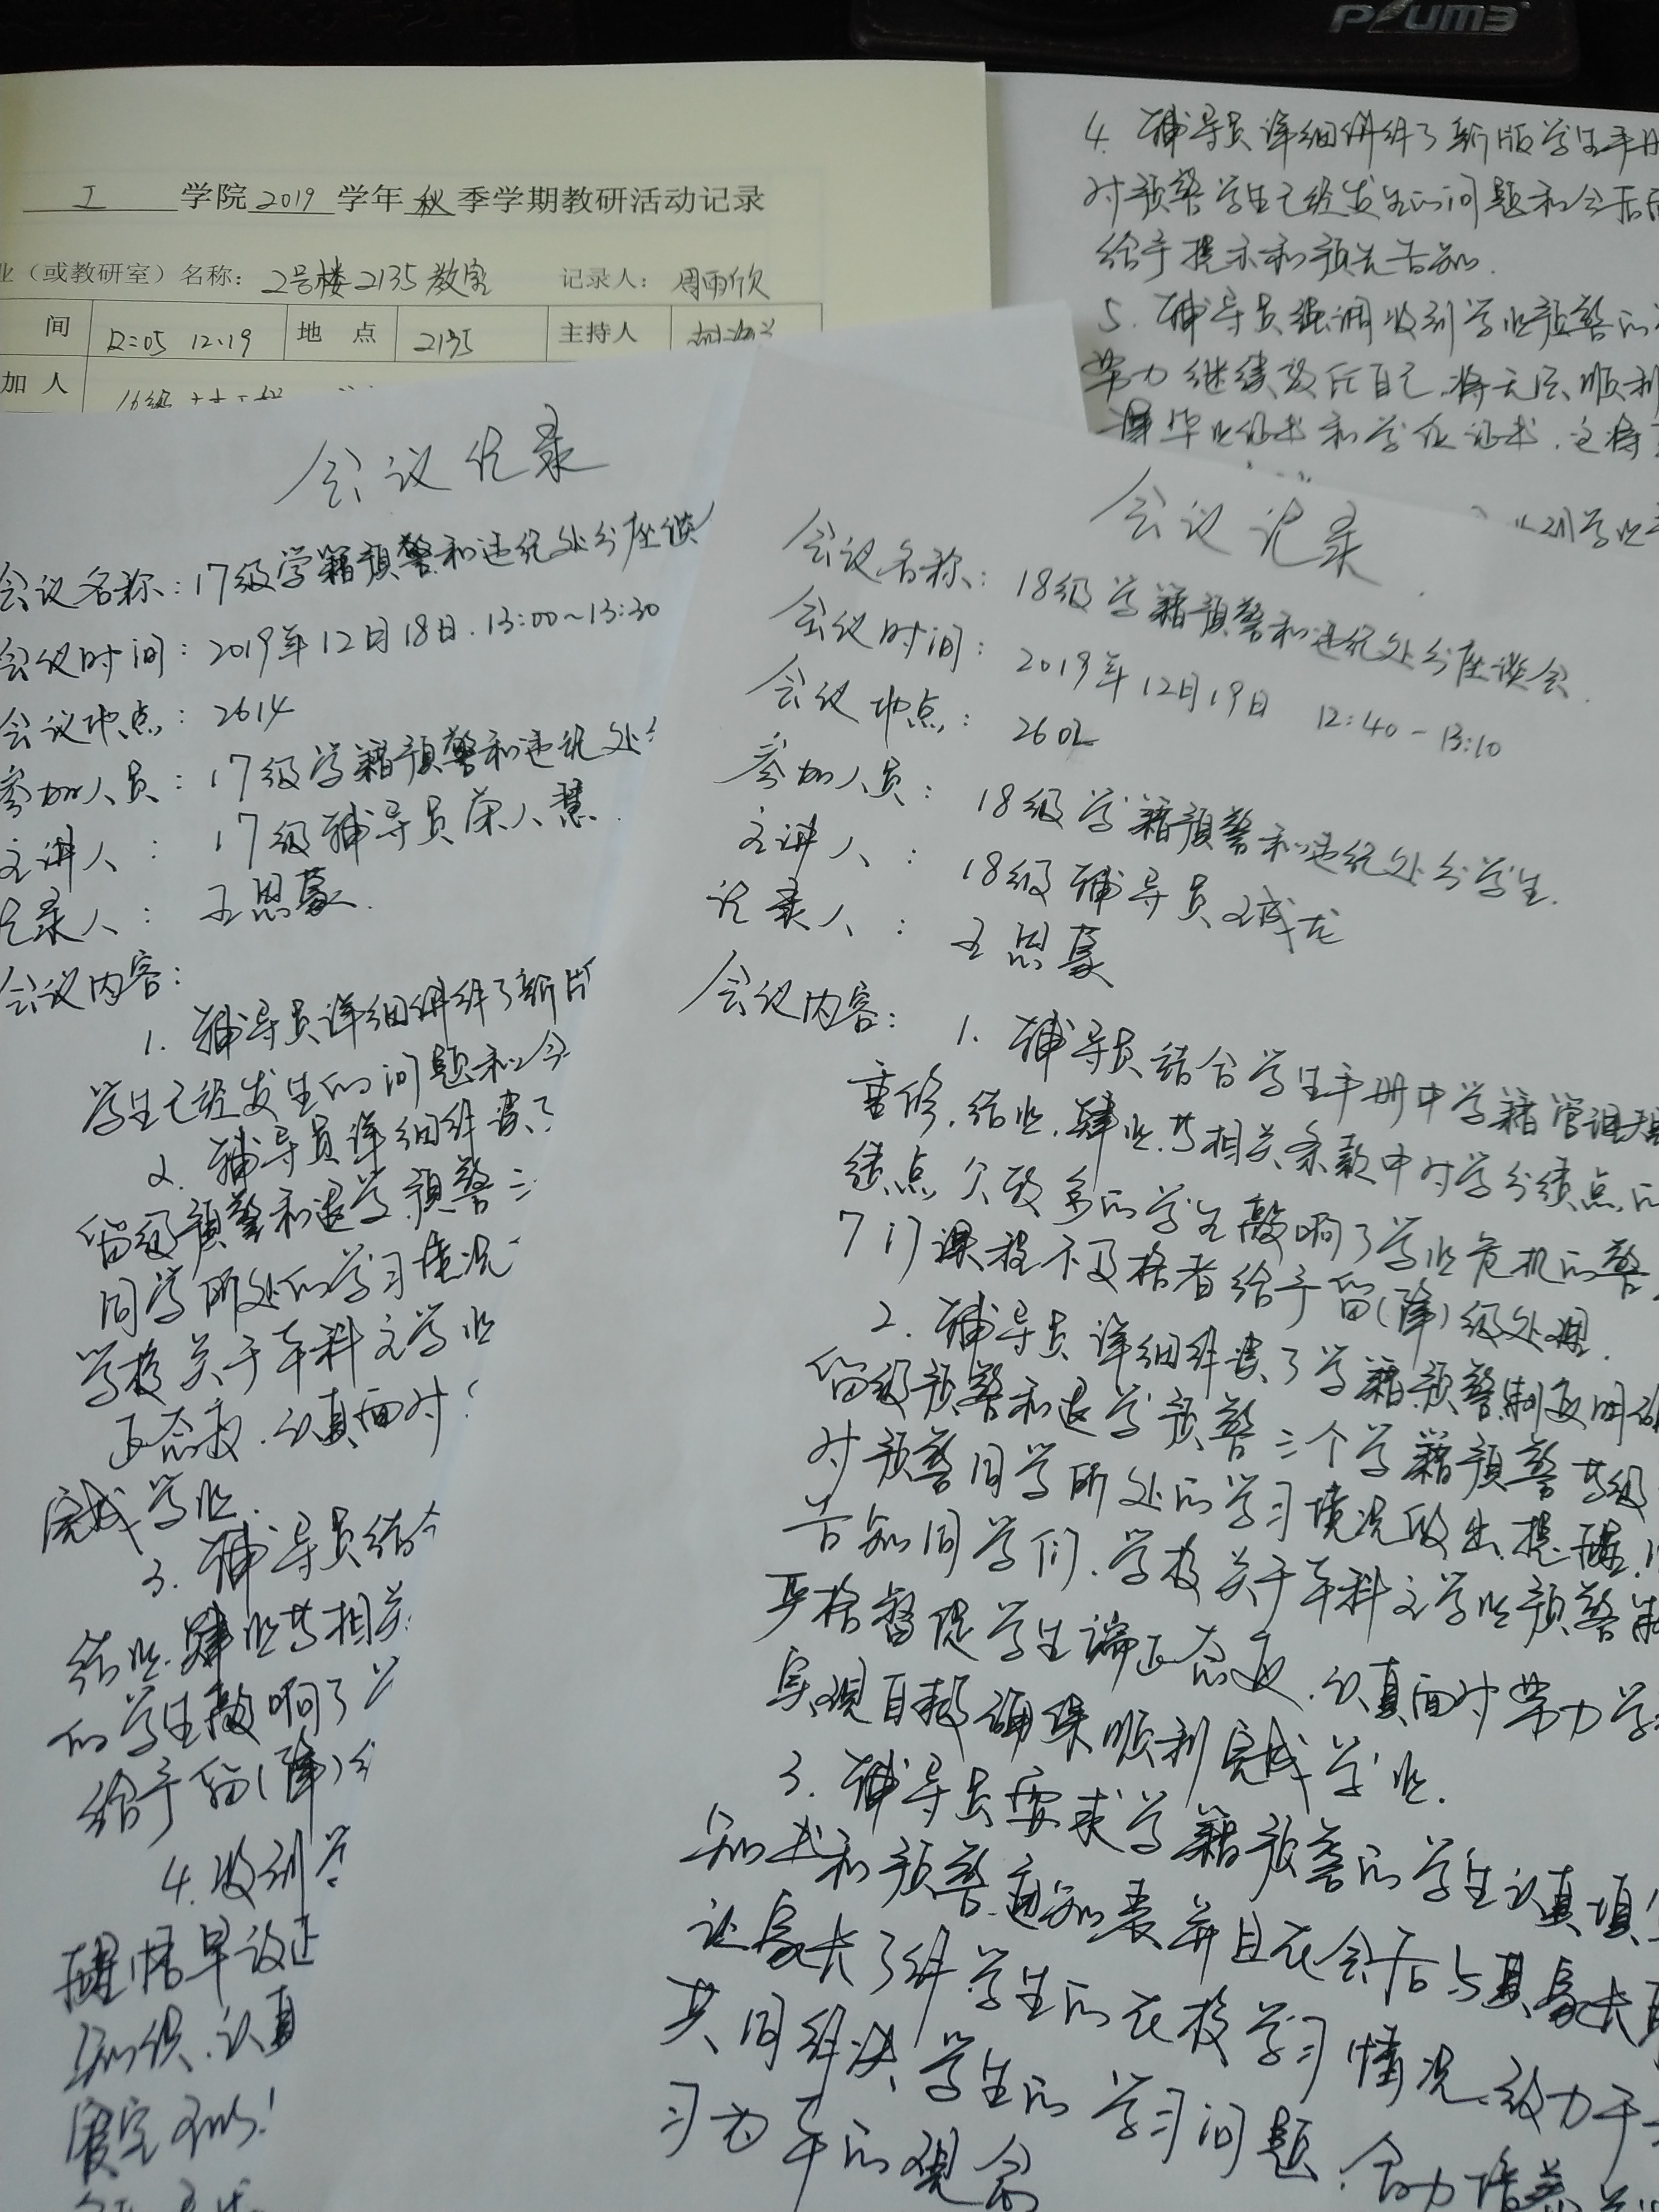 PLUM3
工 学院 2019 学年 秋 季学期教研活动记录
业（或教研室）名称： 2号楼2135教室 记录人： 周雨欣
间 12:05 12.19 地 点 2135 主持人
加 人 16级
4. 辅导员详细讲解了新版学生手册
对预警学生已经发生的问题和今后
给予提示和预先告知.
5. 辅导员强调收到学业预警的
努力继续放任自己,将无法顺利
毕业证书和学位证书.这将
会议记录
会议名称：17级学籍预警和违纪处分座谈
会议时间：2019年12月18日.13:00~13:30
会议地点：2614
参加人员：17级学籍预警和违纪处
主讲人：17级辅导员荣人慧.
记录人：王思蒙.
会议内容：
1. 辅导员详细讲解了新版
学生已经发生的问题和今
2. 辅导员详细解读了
留级预警和退学预警三
同学所处的学习境况
学校关于本科文学业
正态度.认真面对
完成学业.
3. 辅导员结合
结业.肄业等相关
的学生敲响了
给予留(降)级
4. 收到学
醒悟早改正
知识.认真
会议记录
会议名称：18级学籍预警和违纪处分座谈会.
会议时间：2019年12月19日 12:40-13:10
会议地点：2602
参加人员：18级学籍预警和违纪处分学生.
主讲人：18级辅导员王成龙
记录人：王思蒙
会议内容：1. 辅导员结合学生手册中学籍管理
重修.结业.肄业.等相关条款中对学分绩点的
绩点欠致多的学生敲响了学业危机的警
7门课程不及格者给予留(降)级处理.
2. 辅导员详细解读了学籍预警制度明确
留级预警和退学预警三个学籍预警等级
对预警同学所处的学习境况做出提醒.
告知同学们.学校关于本科文学业预警制
严格督促学生端正态度.认真面对努力学
实现自救确保顺利完成学业.
3. 辅导员要求学籍预警的学生认真填
知书和预警通知表并且在会后与其家长
让家长了解学生的在校学习情况.致力于
共同解决学生的学习问题.合力培养
习为本的观念